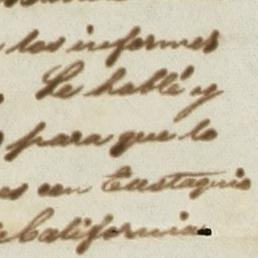 los informes
Le hablé y
para que lo
es con Eustaquio
California